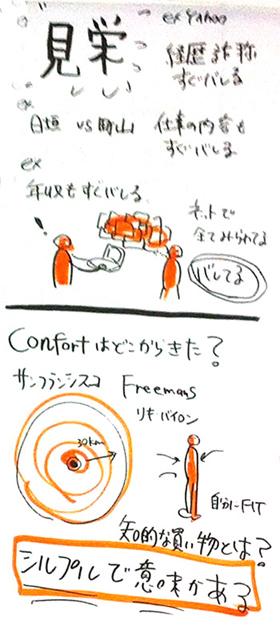 見栄
ex Yahoo
経歴詐称
すぐバレる
ex
白垣 vs 勝山
仕事の内容も
すぐバレる
ex
年収もすぐバレる
!
ネットで
全てみられてる
バレてる
Confortはどこからきた?
サンフランシスコ
Freemans
リキ・バイロン
30km
自分にFIT
知的な買い物とは?
シルプルで意味がある